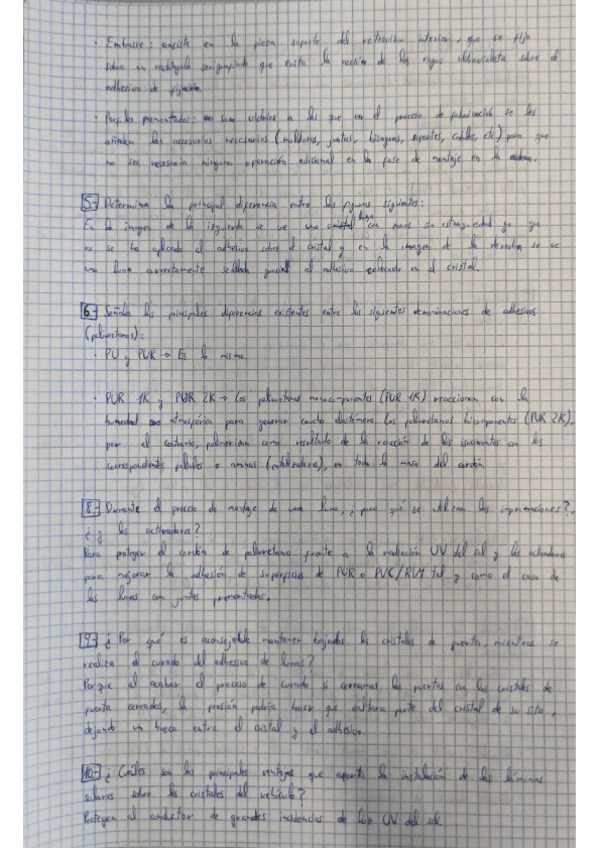 · Embase: consiste en la pieza soporte del retrovisor interior, que se fija
sobre un rectángulo serigrafiado que evita la acción de los rayos ultravioleta sobre el
adhesivo de fijación.
· Perfiles premontados: son vidrios a los que en el proceso de fabricación se les
añaden los accesorios necesarios (molduras, juntas, bisagras, soportes, cables, etc) para que
no sea necesaria ninguna operación adicional en la fase de montaje en la
5- Determina la principal diferencia entre las figuras siguientes:
En la imagen de la izquierda se ve una luna con zonas sin estanqueidad ya que
no se ha aplicado el adhesivo sobre el cristal y en la imagen de la derecha, se ve
una luna correctamente sellada gracias al adhesivo colocado en el cristal.
6- Señala las principales diferencias existentes entre las siguientes denominaciones de adhesivos
(poliuretanos):
· PU y PUR → Es lo mismo.
· PUR 1K y PUR 2K → Los poliuretanos monocomponentes (PUR 1K) reaccionan con la
humedad atmosférica para generar caucho elastómero. Los poliuretanos bicomponentes (PUR 2K),
por el contrario, polimerizan como resultado de la reacción de los isocianatos con los
correspondientes polioles o aminas (catalizadores), en toda la masa del cordón.
8- Durante el proceso de montaje de una luna, ¿para qué se utilizan las imprimaciones?,
¿y los activadores?
Para proteger el cordón de poliuretano frente a la radiación UV del sol y los activadores
para mejorar la adhesión de superficies de PUR o PVC/RIM tal y como el caso de
las lunas con juntas premontadas.
9- ¿Por qué es aconsejable mantener bajados los cristales de puerta, mientras se
realiza el curado del adhesivo de lunas?
Porque al acabar el proceso de curado si cerramos las puertas con los cristales de
puerta cerrados, la presión podría hacer que saltara parte del cristal de su sitio,
dejando un hueco entre el cristal y el adhesivo.
10- ¿Cuáles son las principales ventajas que aporta la instalación de las láminas
solares sobre los cristales del vehículo?
Protegen al conductor de grandes incidencias de luz UV del sol.